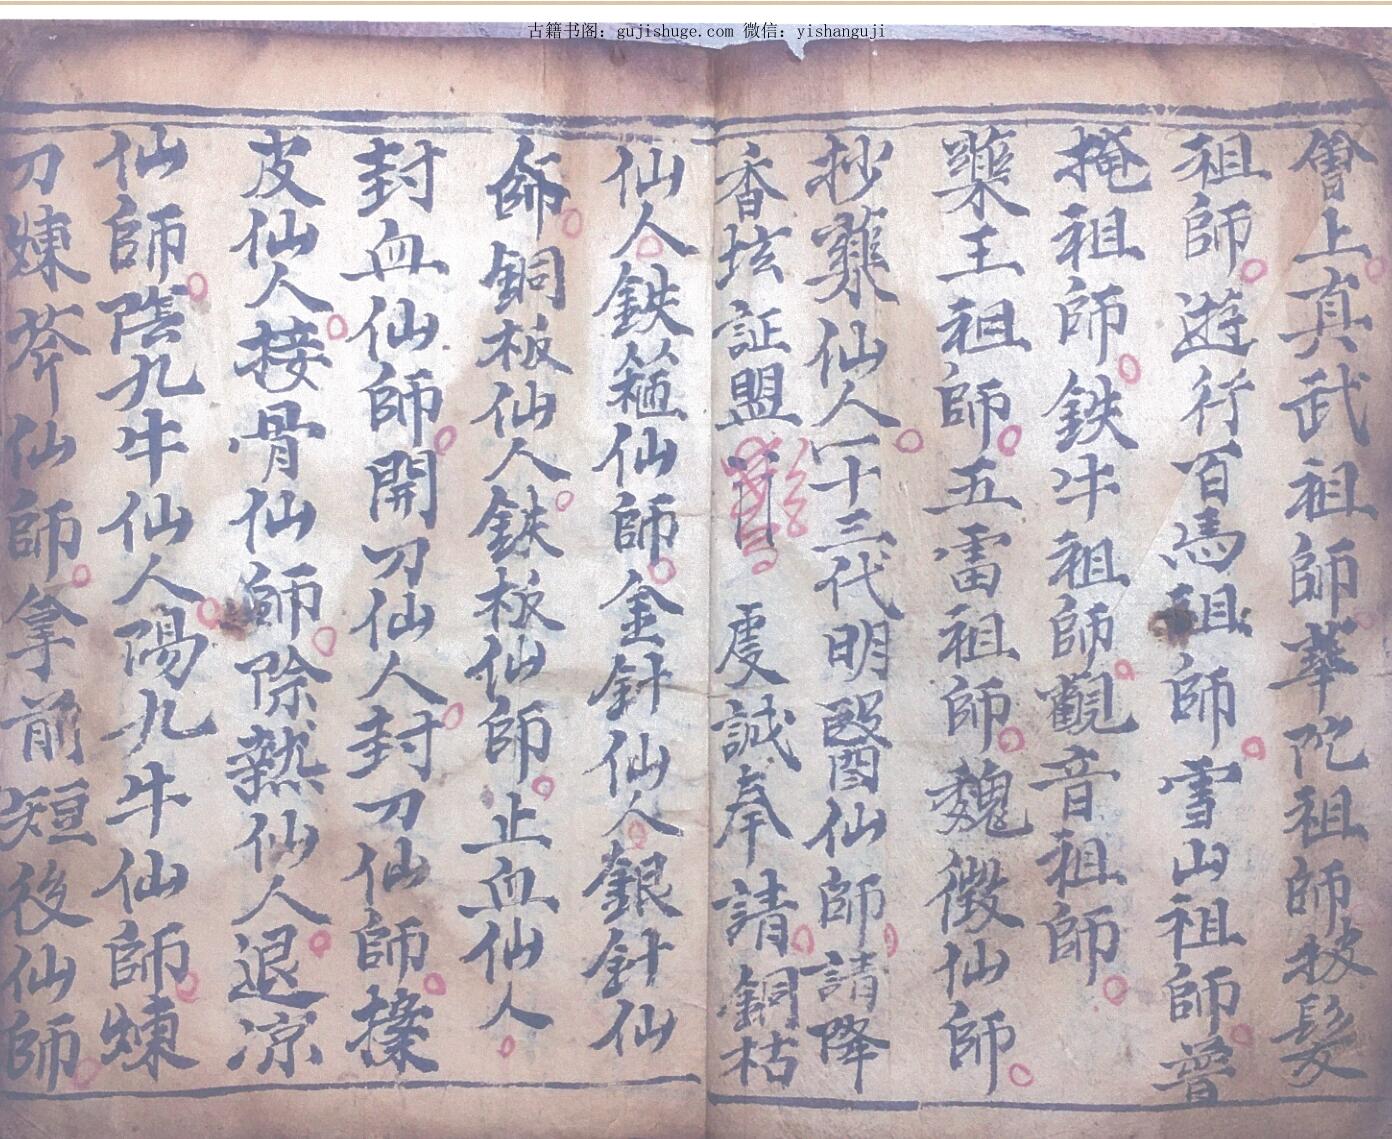 古籍书阁：gujishuge.com 微信：yishanguji
會上真武祖師華陀祖師披髮
祖師遊行百馬祖師雪山祖師普
掩祖師鉄牛祖師觀音祖師
藥王祖師五雷祖師魏徴仙師
抄藥仙人一十三代明醫仙師請降
香坛証盟 虔誠奉請銅枯
仙人鉄箍仙師金針仙人銀針仙
師銅板仙人鉄板仙師止血仙人
封血仙師開刀仙人封刀仙師
皮仙人接骨仙師除熱仙人退凉
仙師陰九牛仙人陽九牛仙師煉
刀煉斧仙師拿前短後仙師